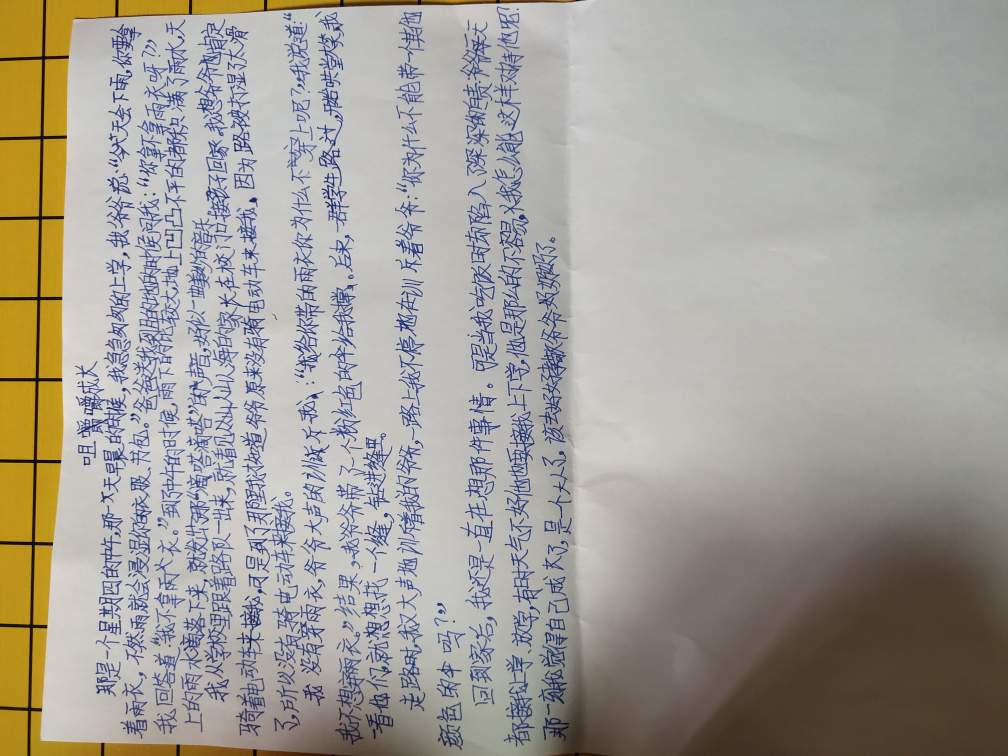 咀嚼成长
那是一个星期四的中午,那一天早晨的时候,我急急匆匆的上学,我爷爷说:“今天会下雨,你要拿
着雨衣,不然雨就会浸湿你的衣服、书包。”爸爸送我到目的地的时候问我:“你拿不拿雨衣呀?”
我回答道“我不拿雨衣。”到了中午的时候,雨下的比较大,地上凹凸不平的都积满了雨水,天
上的雨水滴落下来,就发出了那“滴答滴答”的响声音,好似一曲美妙的音乐
我从学校里跟着路队一出来,就看见人山人山人海的家长在校门口接孩子回家我想爷爷也肯定
骑着电动车来接我,可是到了那里我才知道爷爷原来没有骑电动车来接我。因为路被水湿了太滑
了,所以没有骑电动车来接我。
我没有穿雨衣,爷爷大声的训斥我:“我给你带的雨衣你为什么不穿上呢?”我说道:“
我不想穿雨衣。”结果,我爷爷带了一个粉红色的伞给我撑。后来,一群学生路过,哄哄堂大笑,我
一看他们,就想找一个缝,钻进缝里。
走路时,我又大声地训斥着我的爷爷,一路上我不停地在训斥着爷爷:“你为什么不能带一件其他
颜色的伞吗?”
回到家后,我还是一直在想那件事情。可是当我吃饭时却陷入了深深的自责:爷爷每天
都接我上学、放学,有时天气不好他也要接我上下学,他是那么的不容易,我怎么能这样对待他呢!
那一刻我觉得自己成长了,是一个大人了,该去好好孝敬爷爷奶奶了。